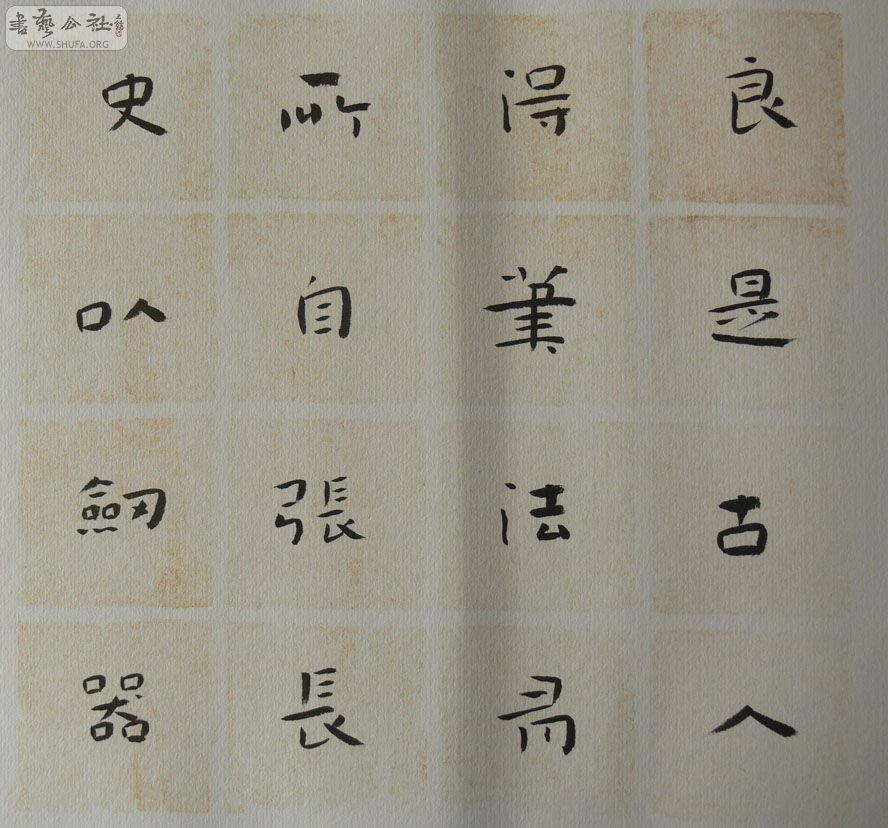 書藝公社
WWW.SHUFA.ORG
良是古人
得筆法有
所自張長
史以劒器